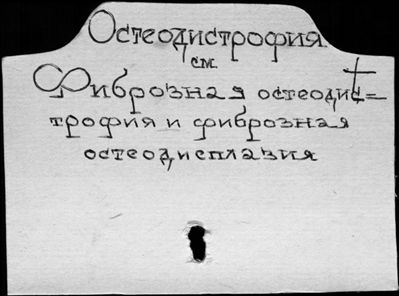 Остеодистрофия
см.
Фиброзная остеодис=
трофия и фиброзная
остеодисплазия